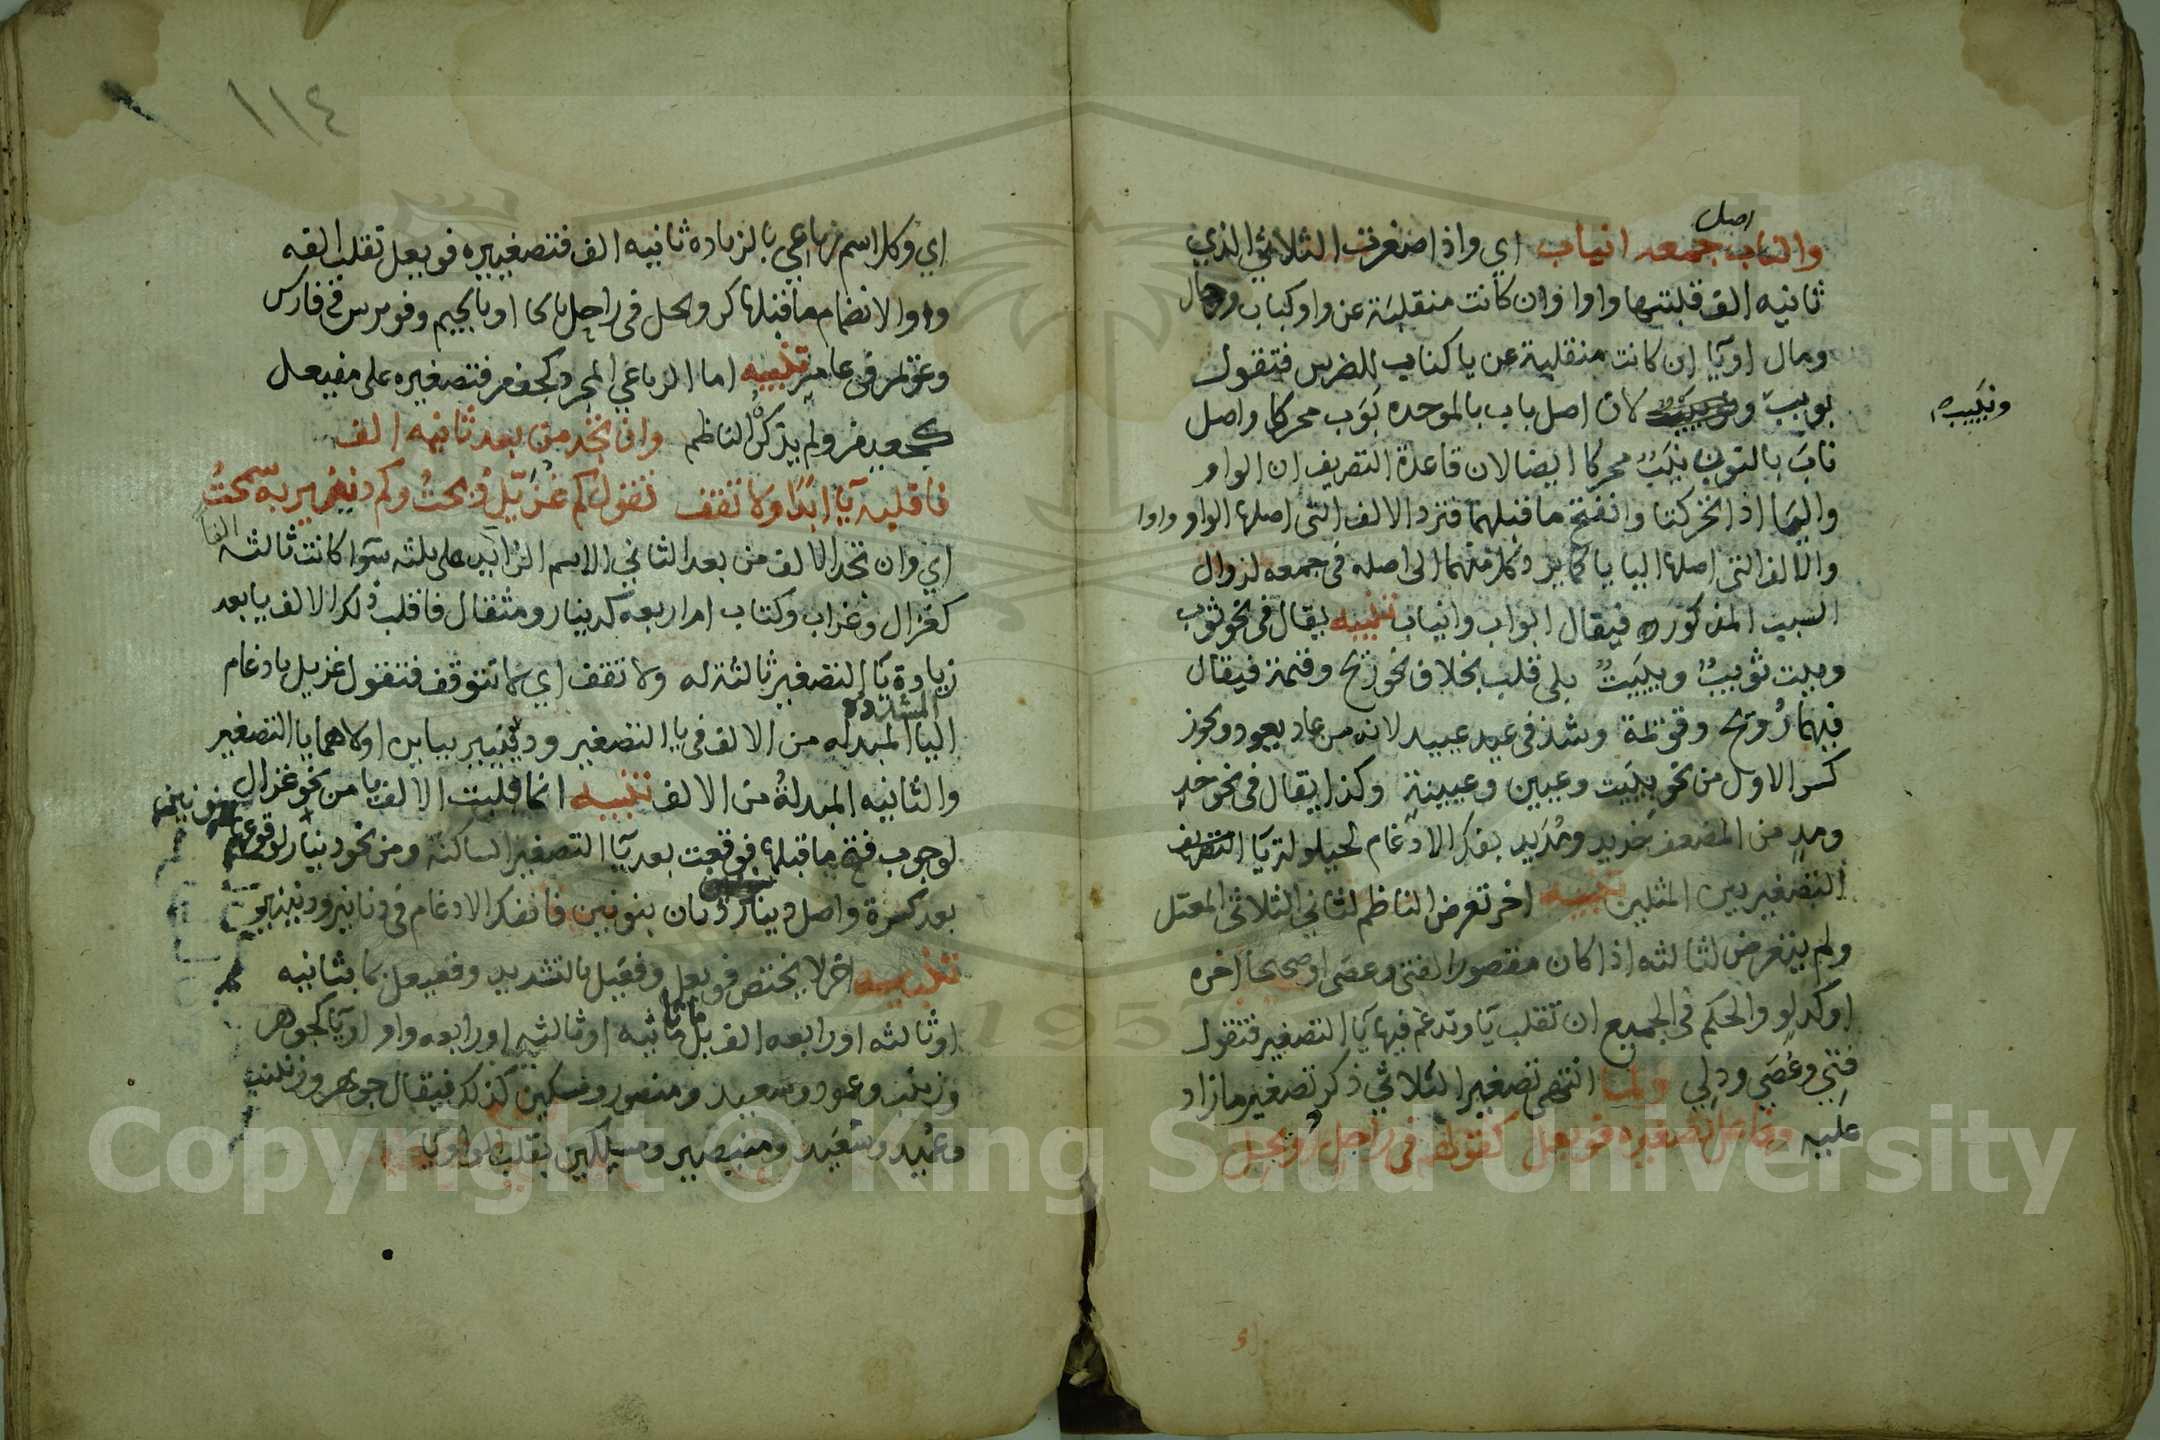 اصل
والناب جمعه انياب اي واذا صغرت الثلاثي الذي
ثانيه الف قلبتها واوا وان كانت منقلبة عن واو كباب وحال
ومال او يا ان كانت منقلبة عن يا كناب للضرس فتقول
بويب لان اصل باب بالموحده بَوَب محركا واصل
ونييب
ناب بالنون نيَب محركا ايضا لان قاعدة التصريف ان الواو
واليا اذا تحركتا وانفتح ما قبلهما فترد الالف التي اصلها الواو واوا
والالف التي اصلها اليا يا كما يرد كل منهما الى اصله في جمعه لزوال
السبب المذكوره فيقال ابواب وانياب تنبيه يقال في نحو ثوب
وبيت ثويب وبييت بلى قلب بخلاف نحو ريح وقيمة فيقال
فيهما رُويح وقويمة وشذ في عيد عييد لانه من عاد يعود ويجوز
كسر الاول من نحو بييت وعيين وعيينة وكذا يقال في نحو خد
ومد من المضعف خديد ومُدَيد بفك الادغام لحيلولة يا
التصغير بين المثلين تنبيه اخر تعرض الناظم لثاني الثلاثي المعتل
ولم يتعرض لثالثه اذا كان مقصورا لفتى وعصى او صحيحا اخره
او كدلو والحكم في الجميع ان تقلب يا وتدغم فيها يا التصغير فتقول
فتي وعُصَي ودلي ولما انتهى تصغير الثلاثي ذكر تصغير ما زاد
عليه وفاعل تصغيره فويعل كقولهم في راجل رويجل
١١٤
اي وكل اسم رباعي بالزياده ثانيه الف فتصغيره فويعل تقلب الفه
واوا لانضمام ما قبلها كرويحل في راحل بالحا او بالجيم وفويرس في فارس
وعويمر في عامر تنبيه اما الرباعي المجرد كجعفر فتصغيره على مفيعل
كجعيفر ولم يذكره الناظم وان تجد من بعد ثانيه الف
فاقلبه يا ابدا ولا تقف تقول كم غزيّل ذبحت وكم دنينير به سمحتُ
اي وان تجد الالف من بعد الثاني الاسم الزايد على ثلثه سوا كانت ثالثة
الفا
كغزال وغراب وكتاب ام رابعه كدينار ومثقال فاقلب ذلك الالف يا بعد
زيادة يا التصغير ثالثة له ولا تقف اي لا تتوقف فتقول غزيل بادغام
المشدده
اليا المبدله من الالف في يا التصغير ودنينير بيايين اولاهما يا التصغير
والثانيه المبدلة من الالف تنبيه انما قلبت الالف يا من نحو غزال
لوجوب فتح ما قبلها فوقعت بعد يا التصغير الساكنة ومن نحو دينار لوقوعها
بعد كسرة واصل دينار دنان بنونين فانفك الادغام في دنانير ودنينير
تنبيه اخر لا يختص فويعل وفعيل بالتشديد وفعيعل بما ثانيه
او ثالثه او رابعه الف بل ما ثانيه او ثالثه او رابعه واو او يا كجوهر
وزينب وعمود وسعيد ومنصور ومسكين كذلك فيقال جويهر وزيينب
وعميد وسعيد ومنيصير ومسيكين بقلب الواو يا
Copyright © King Saud University
1957